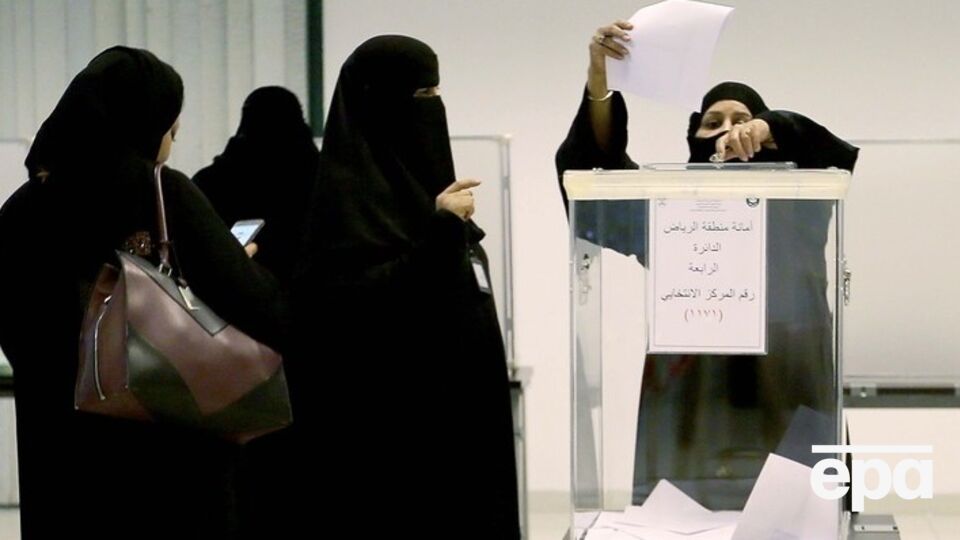 أمانة منطقة الرياض
الدائرة
الرابعة
رقم المركز الانتخابي
(١١٧١)
epa